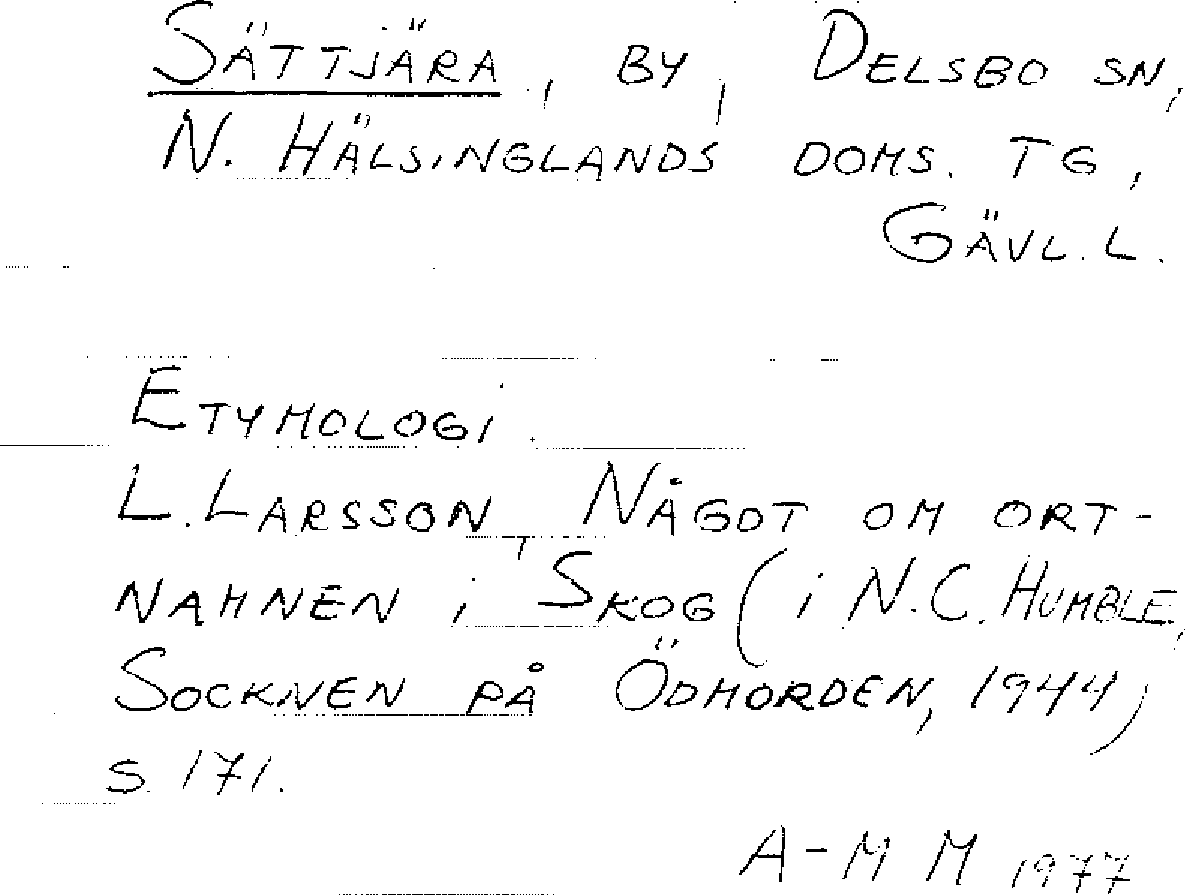 SÄTTJÄRA, BY, DELSBO SN,
N. HÄLSINGLANDS DOMS. TG,
GÄVL. L.
ETYMOLOGI.
L. LARSSON, NÅGOT OM ORT-
NAMNEN i SKOG (i N.C. HUMBLE,
SOCKNEN PÅ ÖDMORDEN, 1944)
S. 171.
A-M M 1977